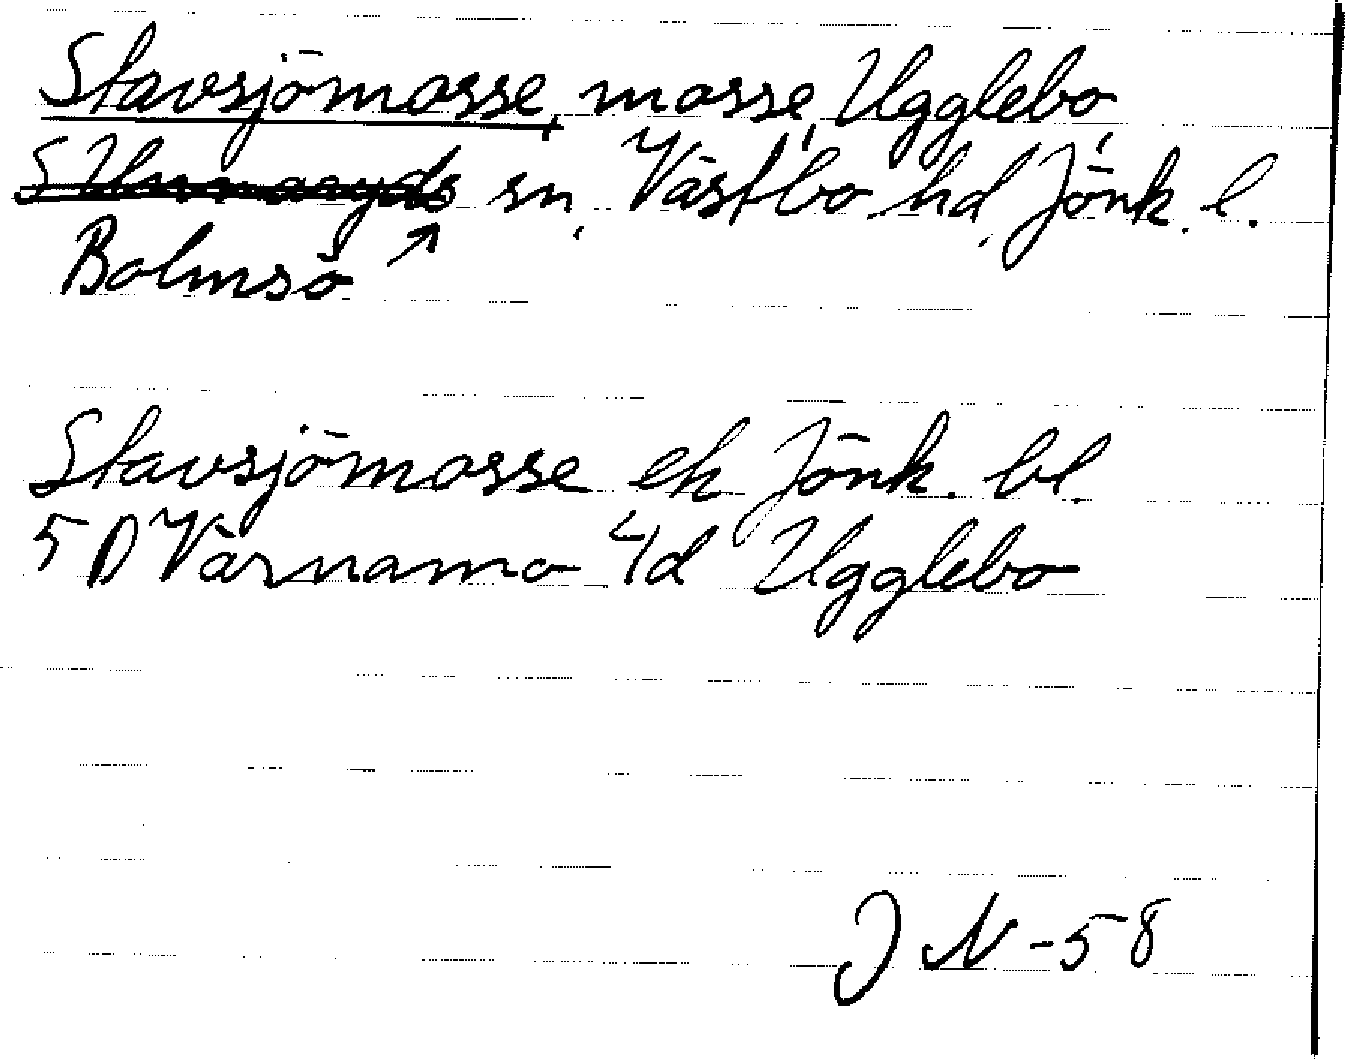 Stavsjömosse, mosse, Ugglebo,
S Unnaryds sn, Västbo hd, Jönk. l.
Bolmsö ↗
Stavsjömosse ek Jönk. bl.
5 D Värnamo 4d Ugglebo
J N -58